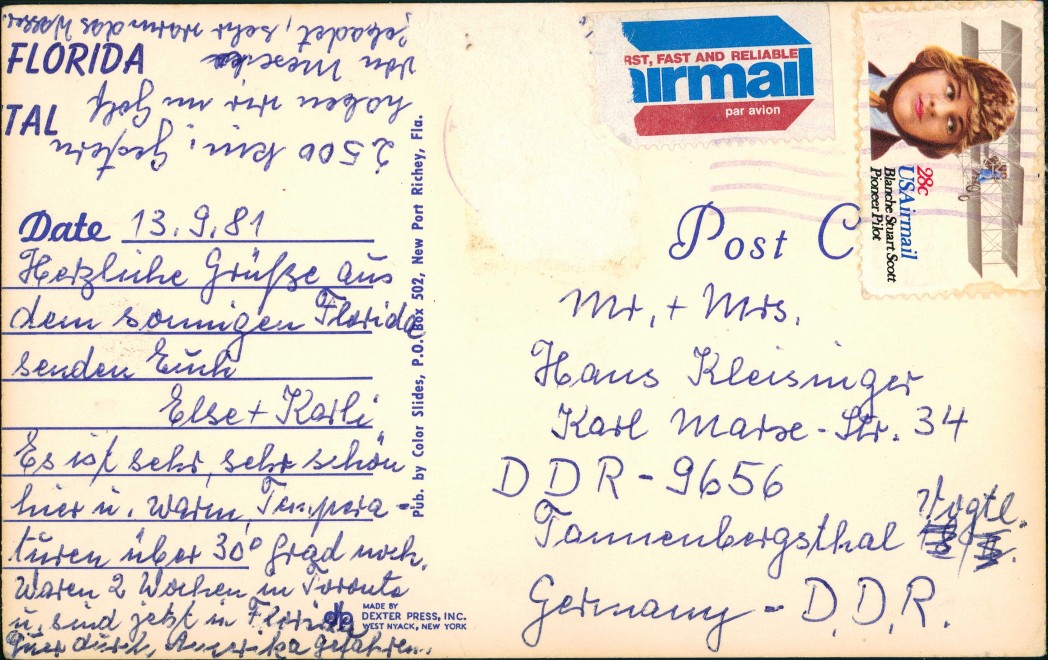 FLORIDA
TAL
Date 13.9.81
Herzliche Grüße aus
dem sonnigen Florida
senden Euch
Else + Karli
Es ist sehr, sehr schön
hier u. warm, Tempera-
turen über 30° Grad noch.
Waren 2 Wochen in Toronto
u. sind jetzt in Florida
Quer durch Amerika gefahren.
2500 km; Gestern
haben wir im Golf
von Mexiko
gebadet, sehr warm das Wasser.
Pub. by Color Slides, P.O. Box 502, New Port Richey, Fla.
MADE BY
DEXTER PRESS, INC.
WEST NYACK, NEW YORK
RST, FAST AND RELIABLE
airmail
par avion
28c
USAirmail
Blanche Stuart Scott
Pioneer Pilot
Post C
Mr. + Mrs.
Hans Kleisinger
Karl Marx-Str. 34
DDR-9656
Tannenbergsthal Vogtl.
Germany - D.D.R.